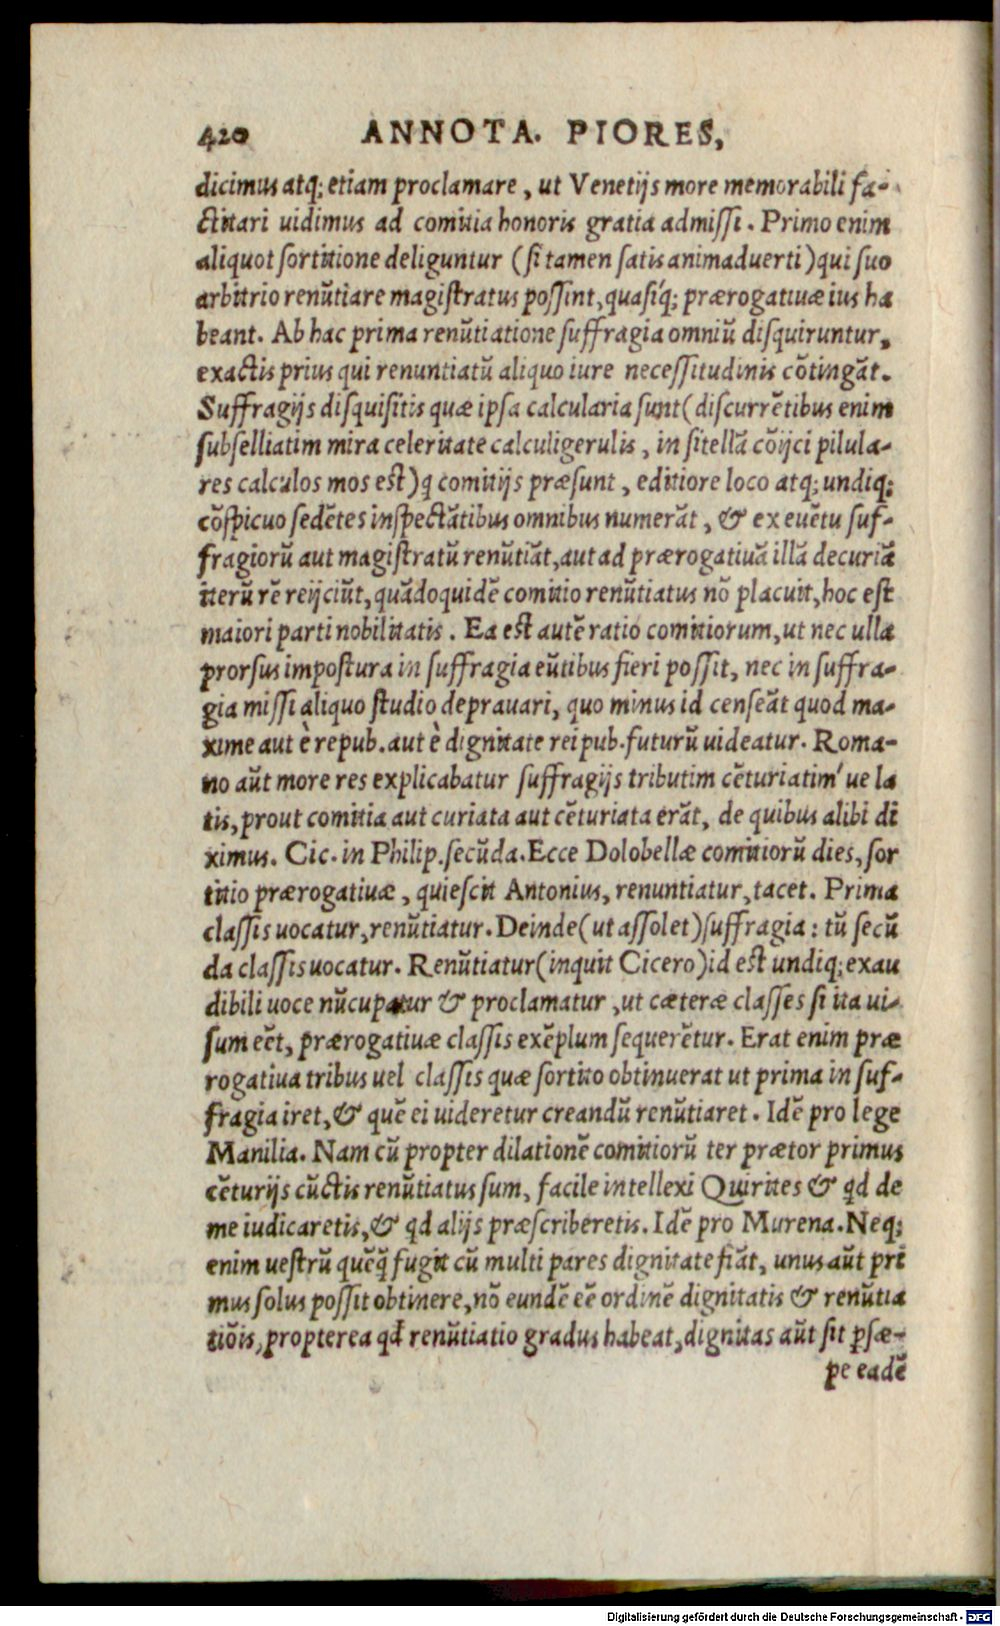 420 ANNOTA. PIORES,
dicimus atq; etiam proclamare, ut Venetijs more memorabili fa-
ctitari uidimus ad comitia honoris gratia admissi. Primo enim
aliquot sortitione deliguntur (si tamen satis animaduerti) qui suo
arbitrio renūtiare magistratus possint, quasíq; prærogatiuæ ius ha
beant. Ab hac prima renūtiatione suffragia omniū disquiruntur,
exactis prius qui renuntiatū aliquo iure necessitudinis cōtingāt.
Suffragijs disquisitis quæ ipsa calcularia sunt (discurrētibus enim
subselliatim mira celeritate calculigerulis, in sitellā cōijci pilula-
res calculos mos est) q comitijs præsunt, editiore loco atq; undiq;
cōspicuo sedētes inspectātibus omnibus numerāt, & ex euētu suf-
fragiorū aut magistratū renūtiāt, aut ad prærogatiuā illā decuriā
iterū rē reijciūt, quādoquidē comitio renūtiatus nō placuit, hoc est
maiori parti nobilitatis. Ea est autē ratio comitiorum, ut nec ulla
prorsus impostura in suffragia eūtibus fieri possit, nec in suffra-
gia missi aliquo studio deprauari, quo minus id censeāt quod ma-
xime aut è repub. aut è dignitate reipub. futurū uideatur. Roma-
no aūt more res explicabatur suffragijs tributim cēturiatim' ue la
tis, prout comitia aut curiata aut cēturiata erāt, de quibus alibi di
ximus. Cic. in Philip. secūda. Ecce Dolobellæ comitiorū dies, sor
titio prærogatiuæ, quiescit Antonius, renuntiatur, tacet. Prima
classis uocatur, renūtiatur. Deinde (ut assolet) suffragia: tū secū
da classis uocatur. Renūtiatur (inquit Cicero) id est undiq; exau
dibili uoce nūcupatur & proclamatur, ut cæteræ classes si ita ui-
sum eēt, prærogatiuæ classis exēplum sequerētur. Erat enim præ
rogatiua tribus uel classis quæ sortito obtinuerat ut prima in suf-
fragia iret, & quē ei uideretur creandū renūtiaret. Idē pro lege
Manilia. Nam cū propter dilationē comitiorū ter prætor primus
cēturijs cūctis renūtiatus sum, facile intellexi Quirites & qd de
me iudicaretis, & qd alijs præscriberetis. Idē pro Murena. Neq;
enim uestrū quēq̄ fugit cū multi pares dignitate fiāt, unus aūt pri
mus solus possit obtinere, nō eundē eē ordinē dignitatis & renūtia
tiōis, propterea qd renūtiatio gradus habeat, dignitas aūt sit psæ-
pe eadē
Digitalisierung gefördert durch die Deutsche Forschungsgemeinschaft - DFG